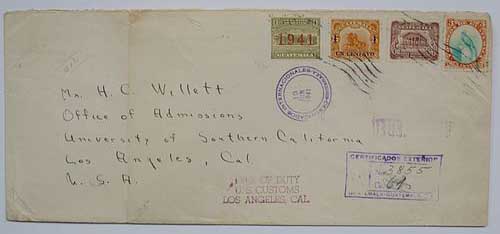 1941
GUATEMALA
UN CENTAVO
Mr. H. C. Willett
Office of Admissions
University of Southern California
Los Angeles, Cal
U. S. A.
INTERNACIONALES
1941
OF DUTY
U.S. CUSTOMS
LOS ANGELES, CAL.
CERTIFICADOS EXTERIOR
3855
GUATEMALA